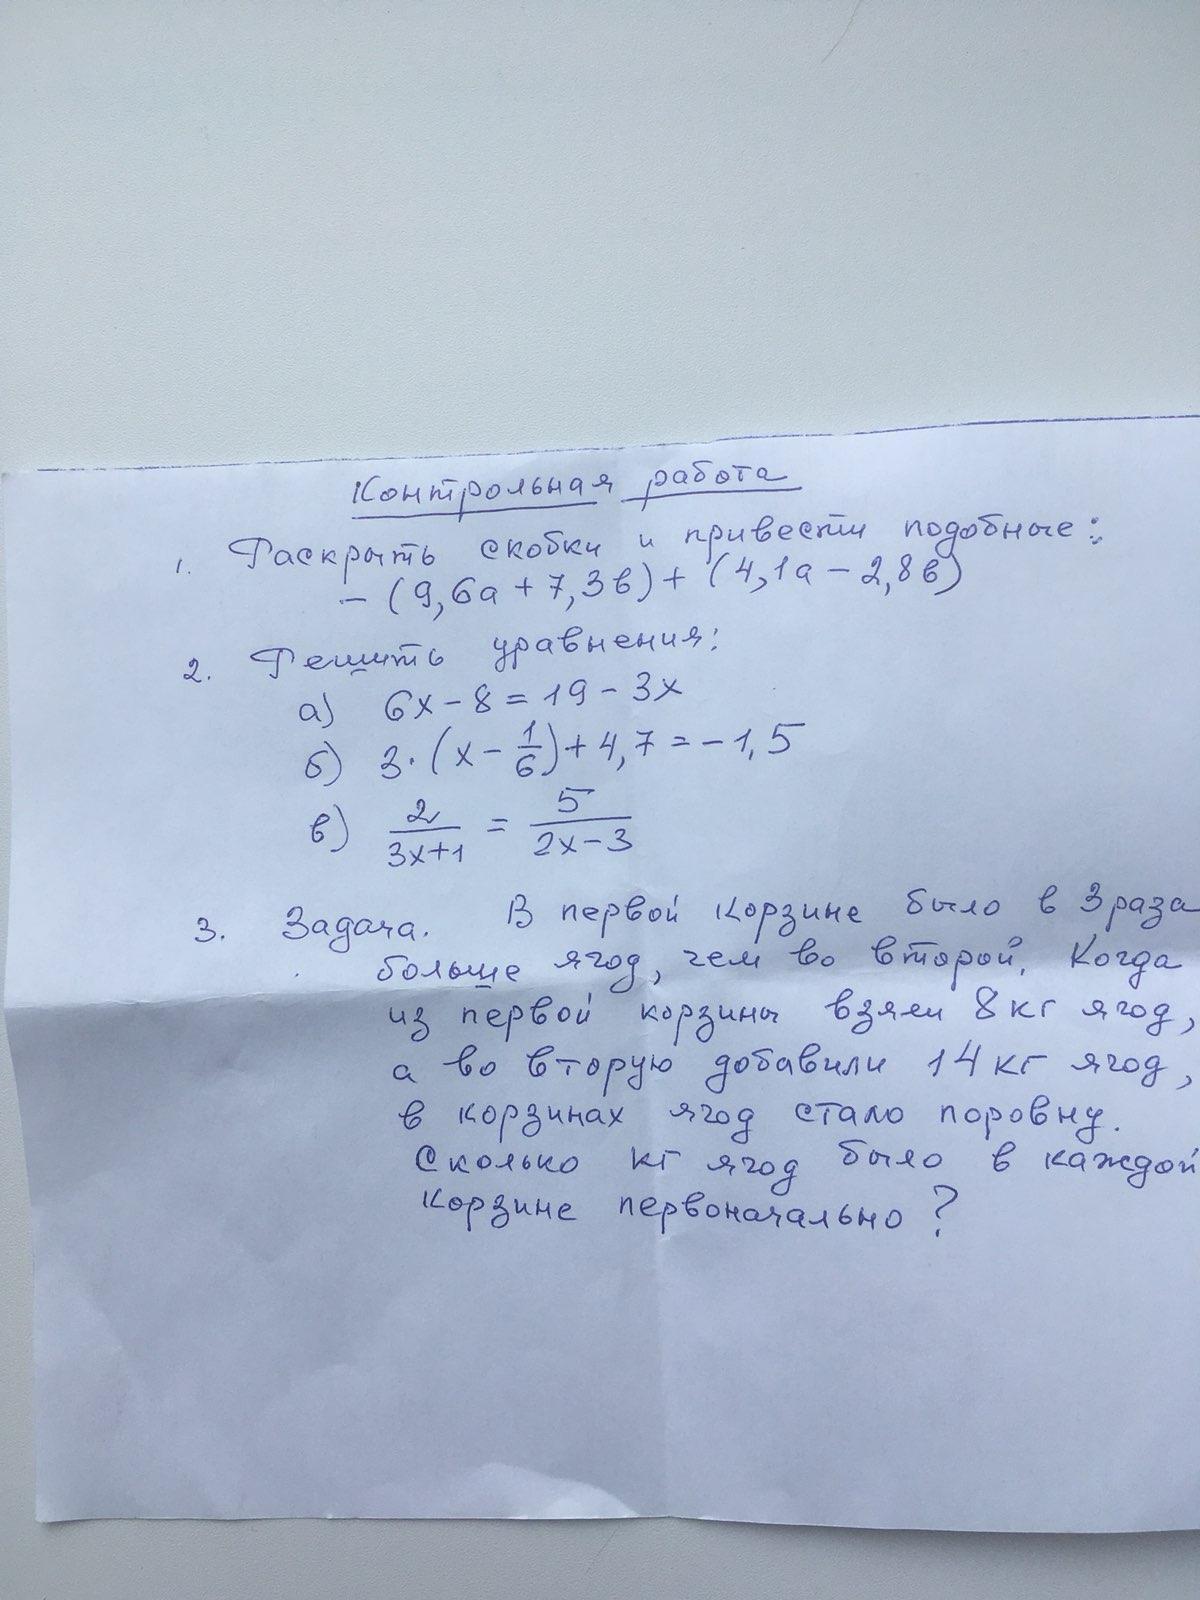 Контрольная работа
1. Раскрыть скобки и привести подобные:
- (9,6а + 7,3в) + (4,1а - 2,8в)
2. Решить уравнения:
а) 6х - 8 = 19 - 3х
б) 3·(х - 1/6) + 4,7 = -1,5
в) 2/(3х+1) = 5/(2х-3)
3. Задача. В первой корзине было в 3 раза
больше ягод, чем во второй. Когда
из первой корзины взяли 8 кг ягод,
а во вторую добавили 14 кг ягод,
в корзинах ягод стало поровну.
Сколько кг ягод было в каждой
корзине первоначально?